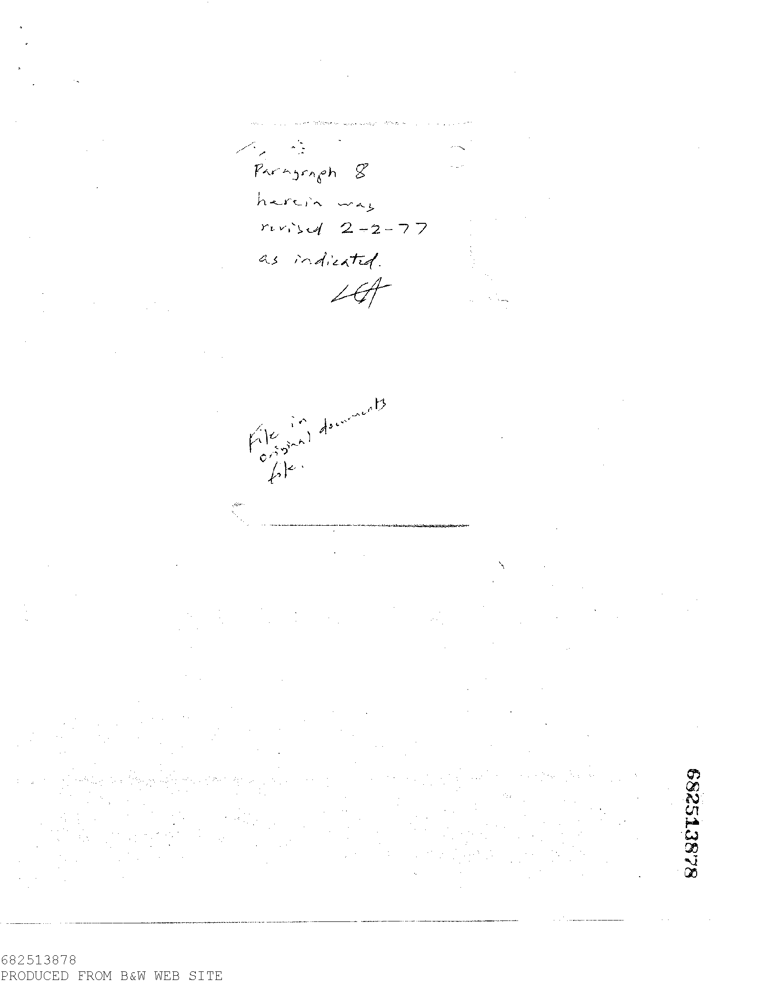 Paragraph 8
herein was
revised 2-2-77
as indicated.
File in
original documents
file.
682513878
682513878
PRODUCED FROM B&W WEB SITE